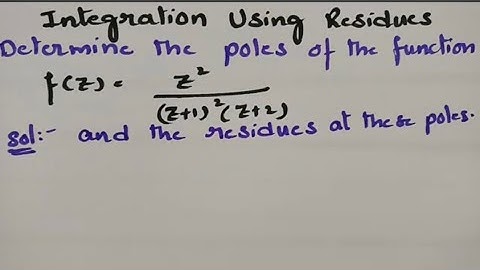 Integration Using Residues
Determine the poles of the function
f(z) = z²/(z+1)²(z+2)
Sol:- and the residues at these poles.